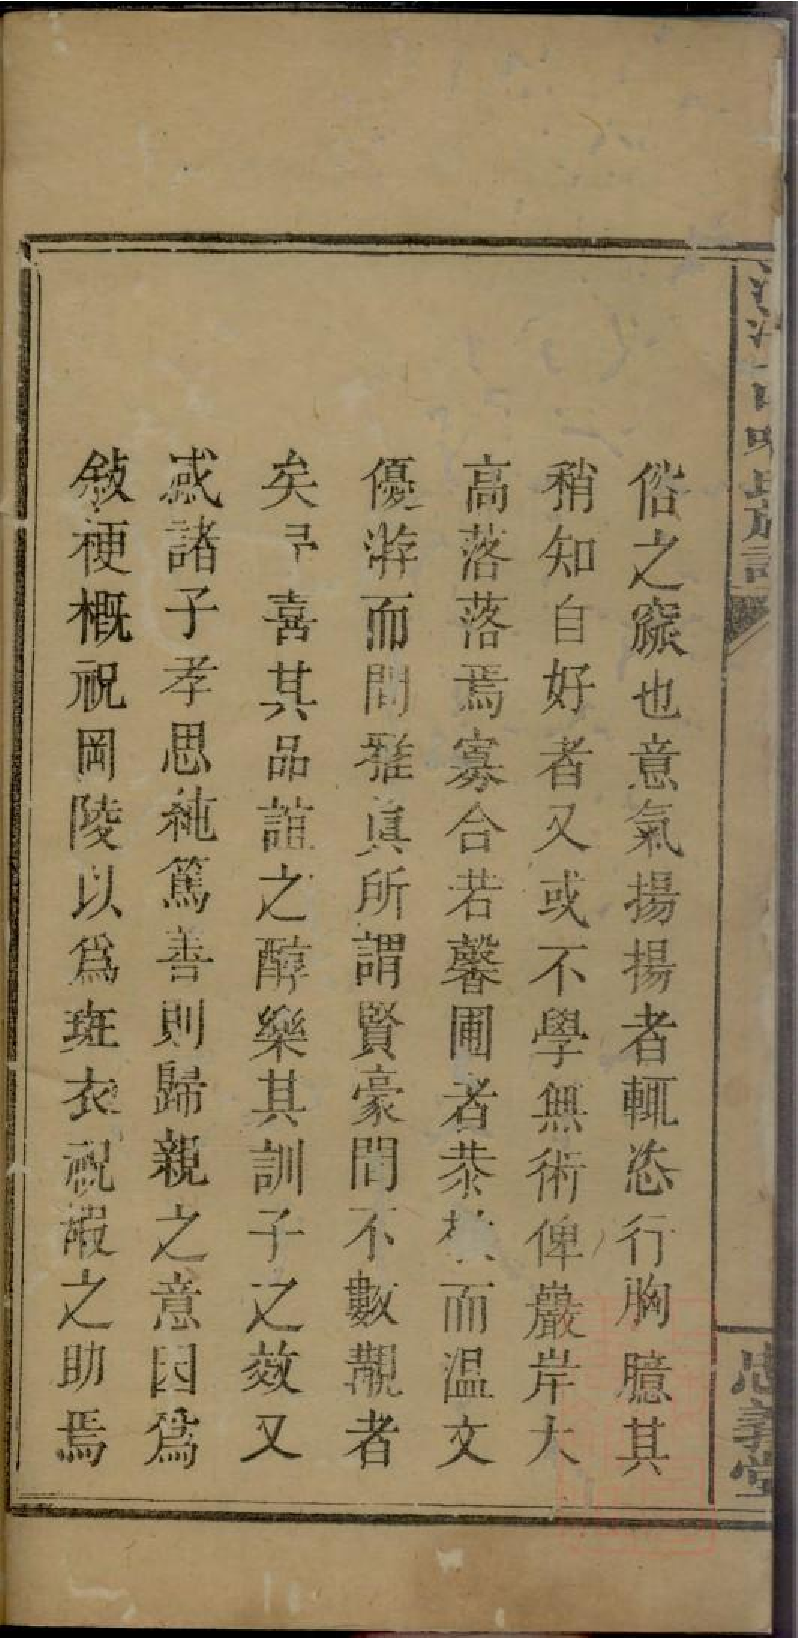 俗之䆮也意氣揚揚者輒恣行胸臆其
稍知自好者又或不學無術俾巖岸大
高落落焉寡合若馨圃者恭而温文
優游而間雅眞所謂賢豪間不數覯者
矣予喜其品誼之醇樂其訓子之效又
感諸子孝思純篤善則歸親之意因爲
敍梗概祝岡陵以爲斑衣祝嘏之助焉
氏族譜
忠義堂